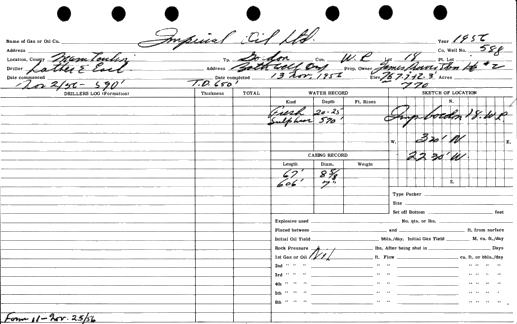 Name of Gas or Oil Co. Imperial Oil Ltd. Year 1956
Address Co. Well No. 588
Location, County Manitoulin Tp. Gordon Con. W.R. Lot 18 Pt. Lot
Driller Address Prop. Owner James #2
Date commenced Date completed 13 Nov. 1956 Elev. 767.3 Acres
Nov 2/56 - 590' T.D. 650' 770
DRILLERS LOG (Formation) Thickness TOTAL WATER RECORD SKETCH OF LOCATION
Kind Depth Ft. Rises N.
Fresh 20-25'
Sulphur 590' 18 W.R.
W. 330' N
CASING RECORD 2230' W
Length Diam. Weight
67' 8 5/8
606' 7" S.
Type Packer
Size
Set off Bottom feet
Explosive used No. qts. or lbs.
Placed between and ft. from surface
Initial Oil Yield bbls./day, Initial Gas Yield M. cu. ft./day
Rock Pressure lbs. After being shut in Days
1st Gas or Oil Nil ft. Flow cu. ft. or bbls./day
2nd " " " " " " " " "
3rd " " " " " " " " "
4th " " " " " " " " "
5th " " " " " " " " "
6th " " " " " " " " "
Form 11 - Nov. 23/56